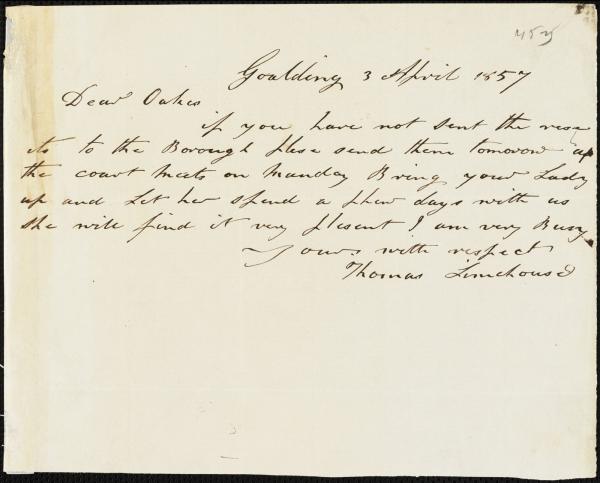 453
Goalding 3 April 1857
Dear Oakes
if you have not sent the rese
its to the Borough plese send them tomorow as
the court meets on Manday Bring your Lady
up and Let her spend a phew days with us
she will find it very plesent I am very Busy
Yours with respect
Thomas Limehouse